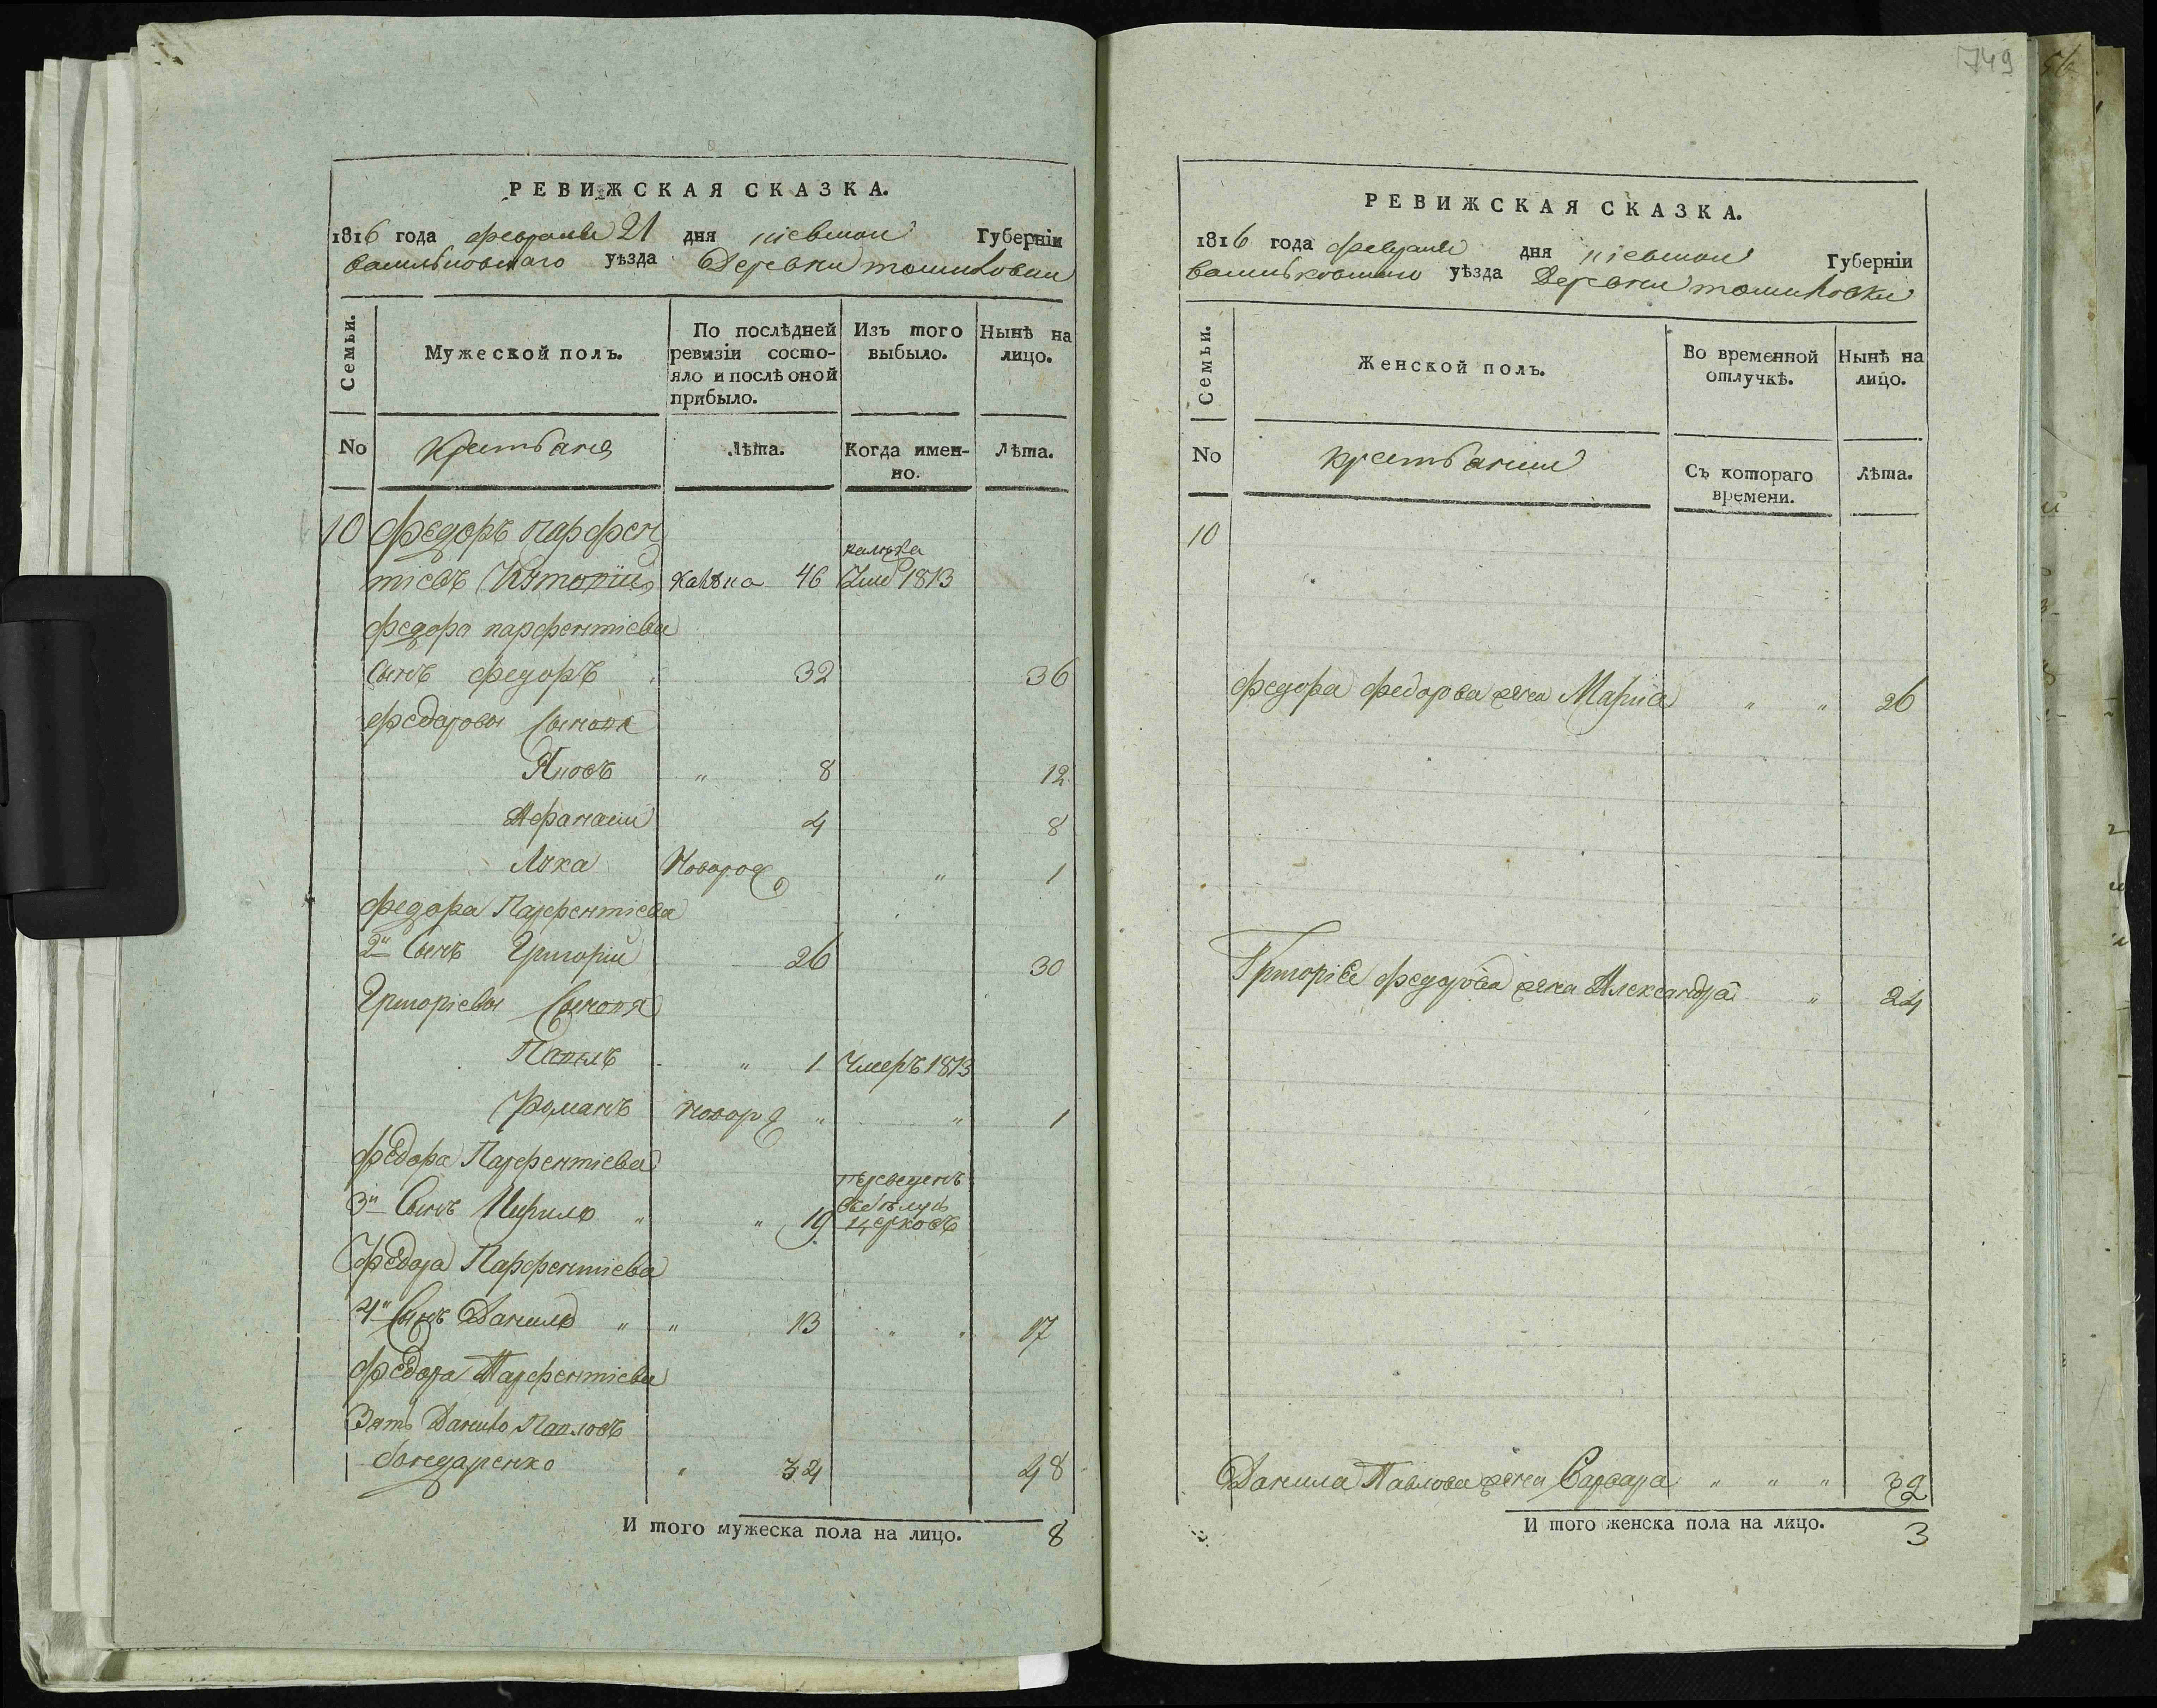 РЕВИЖСКАЯ СКАЗКА.
1816 года февраля 21 дня киевской Губерніи
васильковскаго уѣзда Деревни томиловки
Семьи.
Мужеской полъ.
По послѣдней ревизіи состо-
яло и послѣ оной
прибыло.
Изъ того
выбыло.
Нынѣ на
лицо.
No
крестьяня
Лѣта.
Когда имен-
но.
Лѣта.
10 федоръ парфен
тіевъ калѣка 46 1813
федора парфентіева
сынъ федоръ 32 36
федоровы сыновя
Яковъ " 8 12
Афанасій 4 8
Лука Новород " 1
федора Парфентіева
2й Сынъ Григорій 26 30
Григоріевы Сыновя
Павелъ " 1 Умеръ 1813
Романъ новорд " " 1
федора Парфентіева
3й Сынъ Кирило " " 19 переведенъ
въ бѣлую
церковъ
федора Парфентіева
4й Сынъ Данило " " 13 " " 17
федора Парфентіева
Зять Данило Павловъ
бондаренко " 34 48
И того мужеска пола на лицо. 8
749
РЕВИЖСКАЯ СКАЗКА.
1816 года февраля дня киевской Губерніи
васильковскаго уѣзда Деревни томиловки
Семьи.
Женской полъ.
Во временной
отлучкѣ.
Нынѣ на
лицо.
No
крестьянки
Съ котораго
времени.
Лѣта.
10
федора федорова жена Мария " " 26
Григорія федорова жена Александра " 24
Данила Павлова жена Варвара " " " 32
И того женска пола на лицо. 3